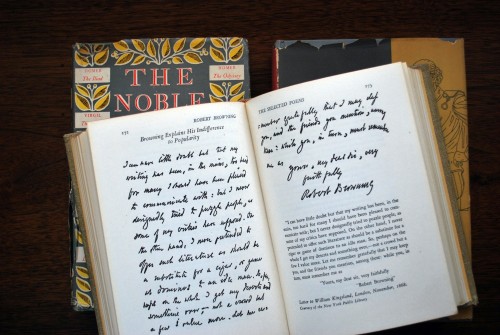 HOMER
The Iliad
HOMER
The Odyssey
VIRGIL
THE
NOBLE
ROBERT BROWNING
Browning Explains His Indifference
to Popularity
I can have little doubt but that my
writing has been, in the main, too hard
for many I should have been pleased
to communicate with; but I never
designedly tried to puzzle people, as
some of my critics have supposed. On
the other hand, I never pretended to
offer such literature as should be
a substitute for a cigar, or game
at dominoes to an idle man. So perhaps
on the whole I get my deserts and
something over – not a crowd but
a few I value more. Let me re-
THE SELECTED POEMS
-member gratefully that I may class
you, and the friends you mention, among
these: while you, in turn, must remember
me as yours, my dear sir, very
faithfully
Robert Browning
"I can have little doubt but that my writing has been, in the
main, too hard for many I should have been pleased to com-
municate with; but I never designedly tried to puzzle people, as
some of my critics have supposed. On the other hand, I never
pretended to offer such literature as should be a substitute for a
cigar or game at dominoes to an idle man. So perhaps on the
whole I get my deserts and something over—not a crowd but a
few I value more. Let me remember gratefully that I may class
you and the friends you mention, among these: while you, in
turn, must remember me as
"Yours, my dear sir, very faithfully
"Robert Browning"
Letter to William Kingsland, London, November, 1868.
Courtesy of the New York Public Library